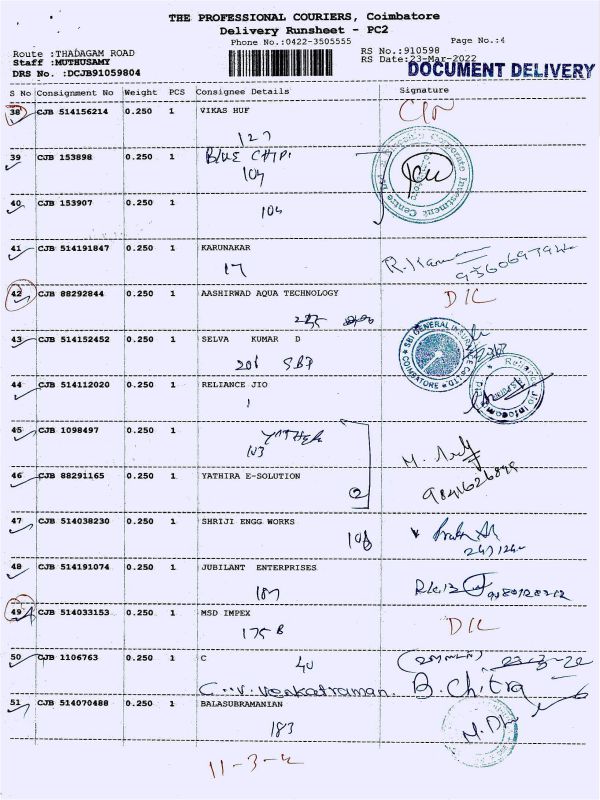 THE PROFESSIONAL COURIERS, Coimbatore
Delivery Runsheet - PC2
Phone No.:0422-3505555 Page No.:4
Route :THADAGAM ROAD RS No.:910598
Staff :MUTHUSAMY RS Date:23-Mar-2022
DRS No. :DCJB91059804 DOCUMENT DELIVERY
S No Consignment No Weight PCS Consignee Details Signature
38 CJB 514156214 0.250 1 VIKAS HUF
127
39 CJB 153898 0.250 1 BLUE CHIP
104
40 CJB 153907 0.250 1
104
41 CJB 514191847 0.250 1 KARUNAKAR
17
42 CJB 88292844 0.250 1 AASHIRWAD AQUA TECHNOLOGY
DIC
43 CJB 514152452 0.250 1 SELVA KUMAR D
SBI GENERAL INSURANCE CO. LTD. COIMBATORE
201 SBI
44 CJB 514112020 0.250 1 RELIANCE JIO
Reliance Jio Infocomm
1
45 CJB 1098497 0.250 1
103
46 CJB 88291165 0.250 1 YATHIRA E-SOLUTION
2
47 CJB 514038230 0.250 1 SHRIJI ENGG WORKS
108
48 CJB 514191074 0.250 1 JUBILANT ENTERPRISES
187
49 CJB 514033153 0.250 1 MSD IMPEX
175 B DIC
50 CJB 1106763 0.250 1 C
40 23-3-22
C. V. Venkatraman. B. Chitra
51 CJB 514070488 0.250 1 BALASUBRAMANIAN
183
11-3-4